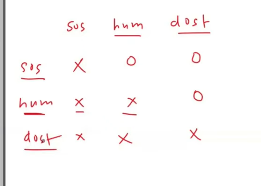 sos hum dost
sos X O O
hum x x O
dost x x x